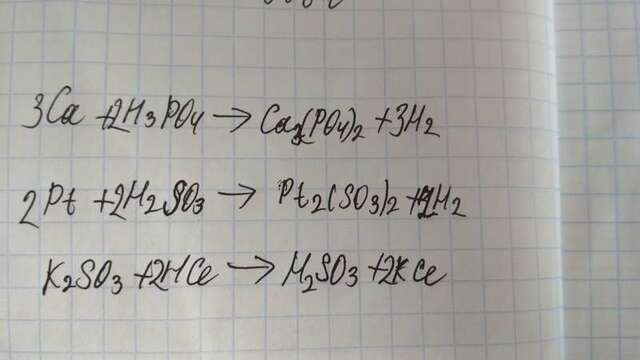 3Ca + 2H3PO4 → Ca3(PO4)2 + 3H2
2Pt + 2H2SO3 → Pt2(SO3)2 + 2H2
K2SO3 + 2HCl → H2SO3 + 2KCl